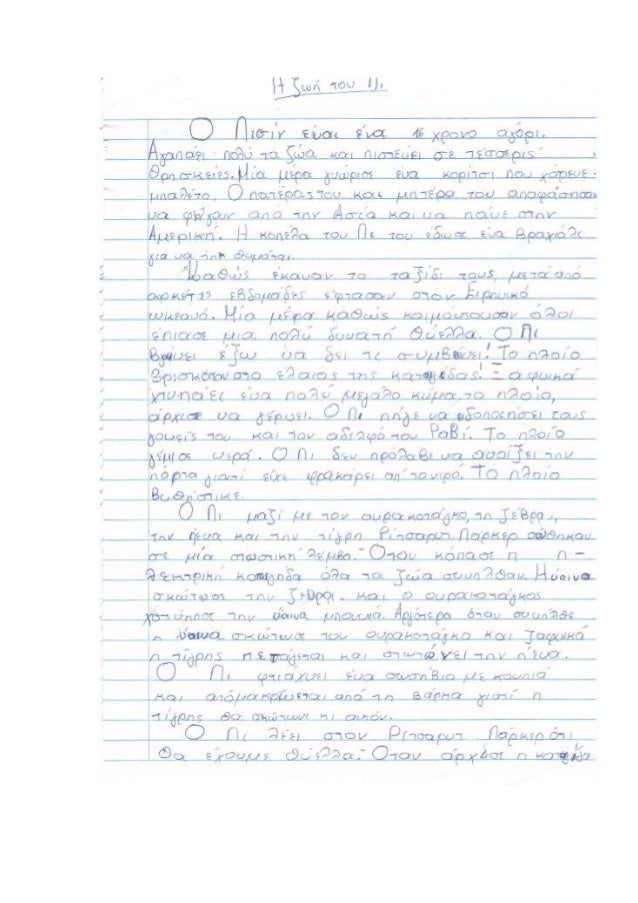 Η ζωή του Πι
Ο Πισίν είναι ένα 16 χρονο αγόρι.
Αγαπάει πολύ τα ζώα και πιστεύει σε τέσσερις
θρησκείες. Μία μέρα γνώρισε ένα κορίτσι που χόρευε
μπαλέτο. Ο πατέρας του και μητέρα του αποφάσησαν
να φύγουν από την Ασία και να πάνε στην
Αμερική. Η κοπέλα του Πι του έδωσε ένα βραχιόλι
για να την θυμάται.
Καθώς έκαναν το ταξίδι τους, μετά από
αρκετές εβδομάδες έφτασαν στον Ειρηνικό
ωκεανό. Μία μέρα καθώς κοιμόντουσαν όλοι
έπιασε μια πολύ δυνατή θύελλα. Ο Πι
βγαίνει έξω να δει τι συμβαίνει! Το πλοίο
βρισκόταν στο έλαιος της καταιγίδας! Ξαφνικά
χτυπάει ένα πολύ μεγάλο κύμα το πλοίο,
άρχισε να γέρνει. Ο Πι πήγε να ιδοποιήσει τους
γονείς του και τον αδελφό του Ραβί. Το πλοίο
γέμισε νερά. Ο Πι δεν πρόλαβε να ανοίξει την
πόρτα γιατί είχε φρακάρει απ' το νερό. Το πλοίο
βυθήστικε.
Ο Πι μαζί με τον ουρακοτάγκο, τη ζέβρα,
την ύενα και την τίγρη Ρίτσαρτ Πάρκερ σώθηκαν
σε μία σωστική λέμβο. Όταν κόπασε η η-
λεκτρική καταιγήδα όλα τα ζώα συνήλθαν. Η ύαινα
σκώτωσε την ζέβρα και ο ουρακοτάγκος
χτύπησε την ύαινα μπουνιά. Αργότερα όταν συνήλθε
η ύαινα σκώτωσε τον ουρακοτάγκο και ξαφνικά
η τίγρης πετάγεται και σκωτώνει την ήενα.
Ο Πι φτιάχνει ένα σωσήβιο με κουπιά
και απόμακρύνεται από τη βάρκα γιατί η
τίγρης θα σκώτωνε κι αυτόν.
Ο Πι λέει στον Ρίτσαρτ Πάρκερ ότι
θα έχουμε θύελλα. Όταν άρχισε η καταιγίδα